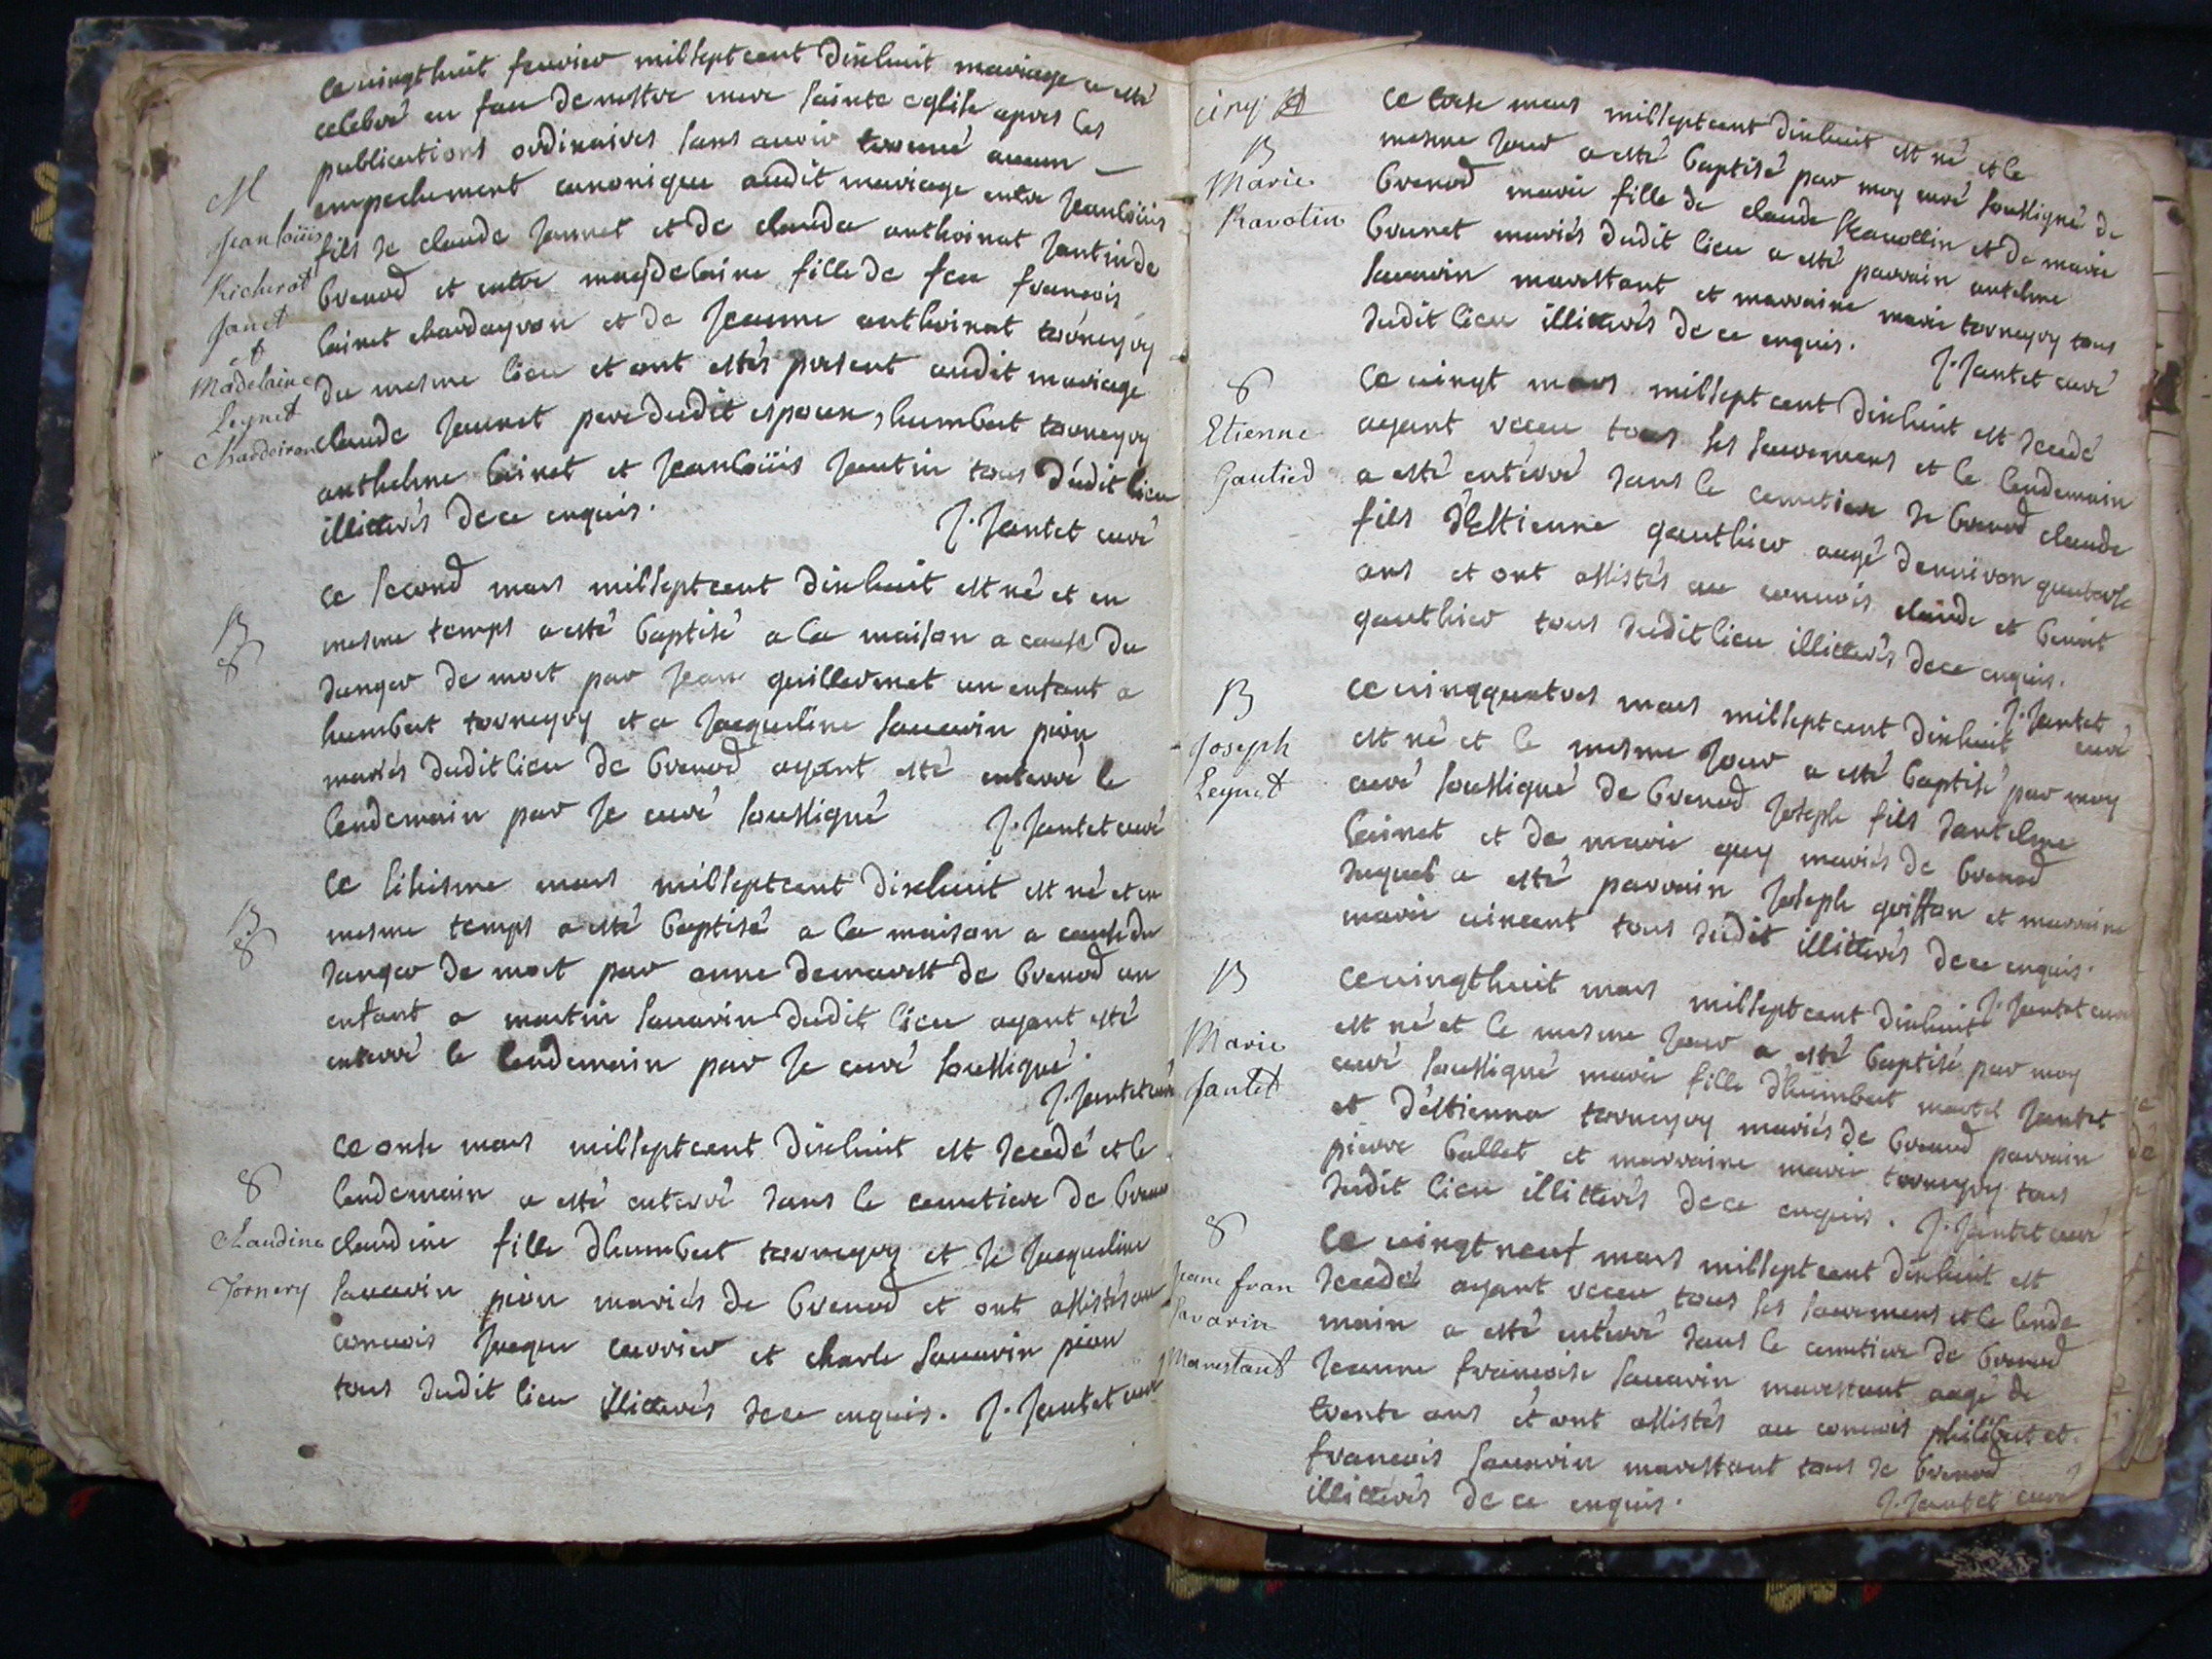 ce vingthuit fevrier millseptcent dixhuit mariage a esté
celebré en face de nostre mere sainte eglise apres les
publications ordinaires sans avoir trouvé aucun
empechement canonique audit mariage entre Jeanloüis
fils de claude Jannet et de clauda anthoinat Jantin de
brenod et entre magdelaine fille de feu francois
leinet chardeyron et de Jeanne anthoinat torneyry
du mesme lieu et ont estés present audit mariage
claude Jannet pere dudit espoux, humbert torneyry
anthelme leinet et Jeanloüis Jantin tous dudit lieu
illitterés de ce enquis.
J. Jantet curé
M
Jean loüis
Richerot
Janet
et
Madelaine
Leynet
Chardeiron
ce second mars millseptcent dixhuit est né et en
mesme temps a esté baptisé a la maison a cause du
danger de mort par Jean guillermet un enfant a
humbert torneyry et a Jacqueline savarin pion
mariés dudit lieu de brenod ayant esté enterré le
lendemain par Je curé soussigné
J. Jantet curé
B
ce sixisme mars millseptcent dixhuit est né et en
mesme temps a esté baptisé a la maison a cause du
danger de mort par anne demarest de brenod un
enfant a martin savarin dudit lieu ayant esté
enterré le lendemain par Je curé soussigné.
J. Jantet curé
B
ce onse mars millseptcent dixhuit est decedé et le
lendemain a esté enterré dans le cemetiere de brenod
claudine fille dhumbert torneyry et de Jacqueline
savarin pion mariés de brenod et ont assistés au
convois Jaque carrier et charle savarin pion
tous dudit lieu illitterés de ce enquis. J. Jantet curé
Claudine
Tornery
cinq
ce trese mars millseptcent dixhuit est né et le
mesme Jour a esté baptisé par moy curé soussigné de
brenod marie fille de claude Ravottin et de marie
brunet mariés dudit lieu a esté parrain antelme
savarin marestant et marraine marie torneyry tous
dudit lieu illitterés de ce enquis.
J. Jantet curé
B
Marie
Ravotin
ce vingt mars millseptcent dixhuit est decedé
ayant receu tous ses sacremens et le lendemain
a esté enterré dans le cemetiere de brenod claude
fils d'Estienne gauthier aagé denviron quatorse
ans et ont assistés au convois claude et benoit
gauthier tous dudit lieu illitterés de ce enquis.
J. Jantet
curé
Etienne
Gautier
ce vingqquatres mars millseptcent dixhuit
est né et le mesme Jour a esté baptisé par moy
curé soussigné de brenod Joseph fils dantelme
leinet et de marie guy mariés de brenod
duquel a esté parrain Joseph griffon et marraine
marie vincent tous dudit illitterés de ce enquis.
J. Jantet curé
B
Joseph
Leynet
ce vingthuit mars millseptcent dixhuit
est né et le mesme Jour a esté baptisé par moy
curé soussigné marie fille d'humbert martel Jantet
et d'estienna torneyry mariés de brenod parrain
pierre ballet et marraine marie torneyry tous
dudit lieu illitterés de ce enquis. J. Jantet curé
B
Marie
Jantet
ce vingtneuf mars millseptcent dixhuit est
decedé ayant receu tous ses sacremens et le lende
main a esté enterré dans le cemetiere de brenod
Jeanne francoise savarin marestant aagé de
trente ans et ont assistés au convois philibert et
francois savarin marestant tous de brenod
illitterés de ce enquis.
J. Jantet curé
Jeane fran
Savarin
Marestant